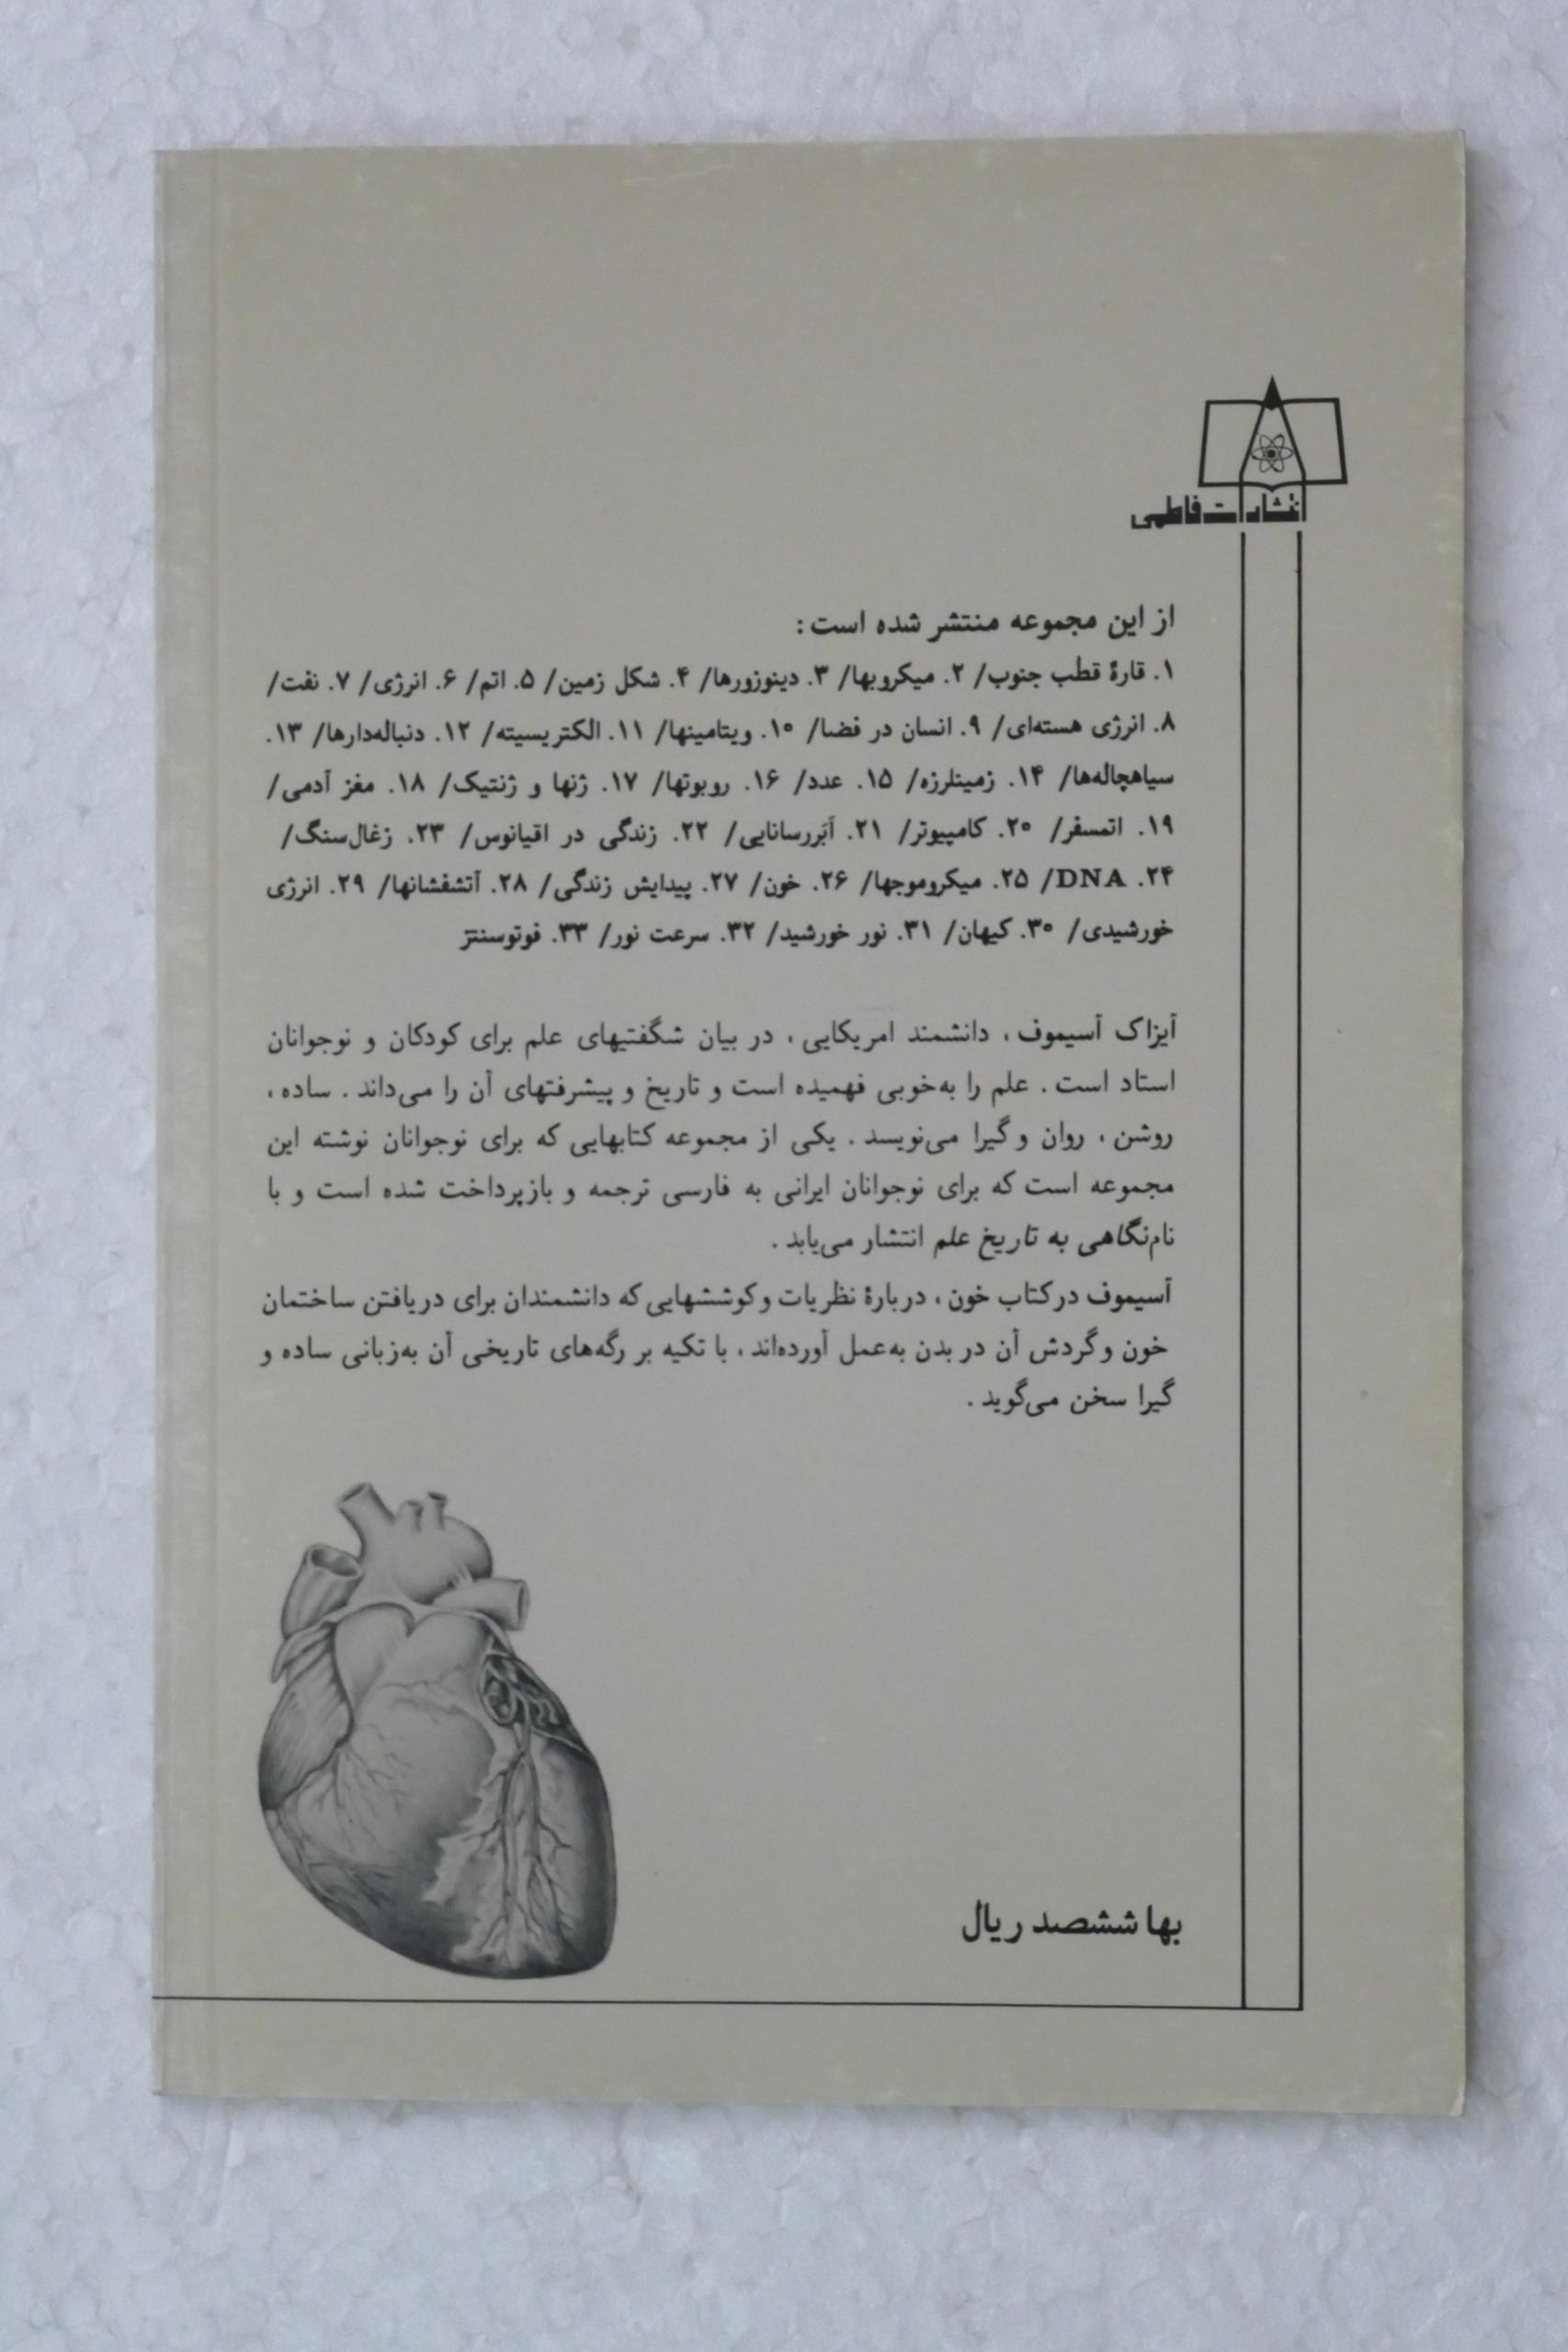 انتشارات فاطمی
از این مجموعه منتشر شده است:
۱. قارهٔ قطب جنوب/ ۲. میکروبها/ ۳. دینوزورها/ ۴. شکل زمین/ ۵. اتم/ ۶. انرژی/ ۷. نفت/
۸. انرژی هسته‌ای/ ۹. انسان در فضا/ ۱۰. ویتامینها/ ۱۱. الکتریسیته/ ۱۲. دنباله‌دارها/ ۱۳.
سیاهچاله‌ها/ ۱۴. زمینلرزه/ ۱۵. عدد/ ۱۶. روبوتها/ ۱۷. ژنها و ژنتیک/ ۱۸. مغز آدمی/
۱۹. اتمسفر/ ۲۰. کامپیوتر/ ۲۱. اَبَررسانایی/ ۲۲. زندگی در اقیانوس/ ۲۳. زغال‌سنگ/
۲۴. DNA/ ۲۵. میکروموجها/ ۲۶. خون/ ۲۷. پیدایش زندگی/ ۲۸. آتشفشانها/ ۲۹. انرژی
خورشیدی/ ۳۰. کیهان/ ۳۱. نور خورشید/ ۳۲. سرعت نور/ ۳۳. فوتوسنتز
آیزاک آسیموف، دانشمند امریکایی، در بیان شگفتیهای علم برای کودکان و نوجوانان
استاد است. علم را به‌خوبی فهمیده است و تاریخ و پیشرفتهای آن را می‌داند. ساده،
روشن، روان و گیرا می‌نویسد. یکی از مجموعه کتابهایی که برای نوجوانان نوشته این
مجموعه است که برای نوجوانان ایرانی به فارسی ترجمه و بازپرداخت شده است و با
نام نگاهی به تاریخ علم انتشار می‌یابد.
آسیموف در کتاب خون، دربارهٔ نظریات و کوششهایی که دانشمندان برای دریافتن ساختمان
خون و گردش آن در بدن به‌عمل آورده‌اند، با تکیه بر رگه‌های تاریخی آن به‌زبانی ساده و
گیرا سخن می‌گوید.
بها ششصد ریال